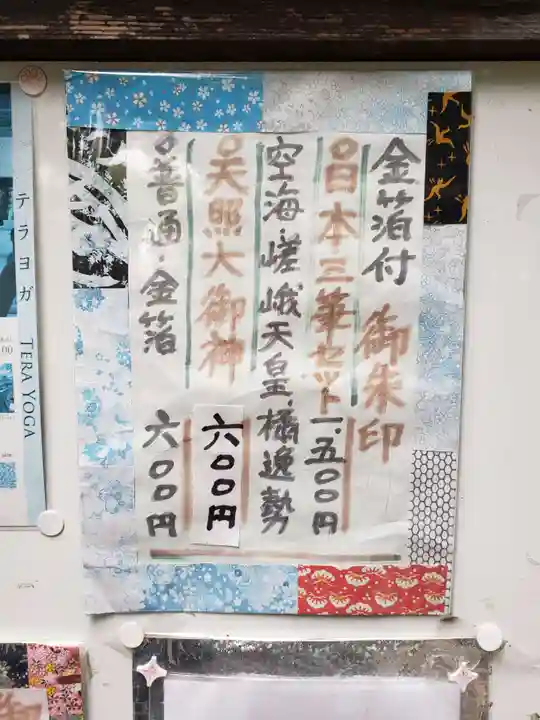 金箔付 御朱印
○日本三筆セット 一、五〇〇円
空海・嵯峨天皇・橘逸勢
○天照大御神 六〇〇円
○普通・金箔 六〇〇円
テラヨガ
TERA YOGA